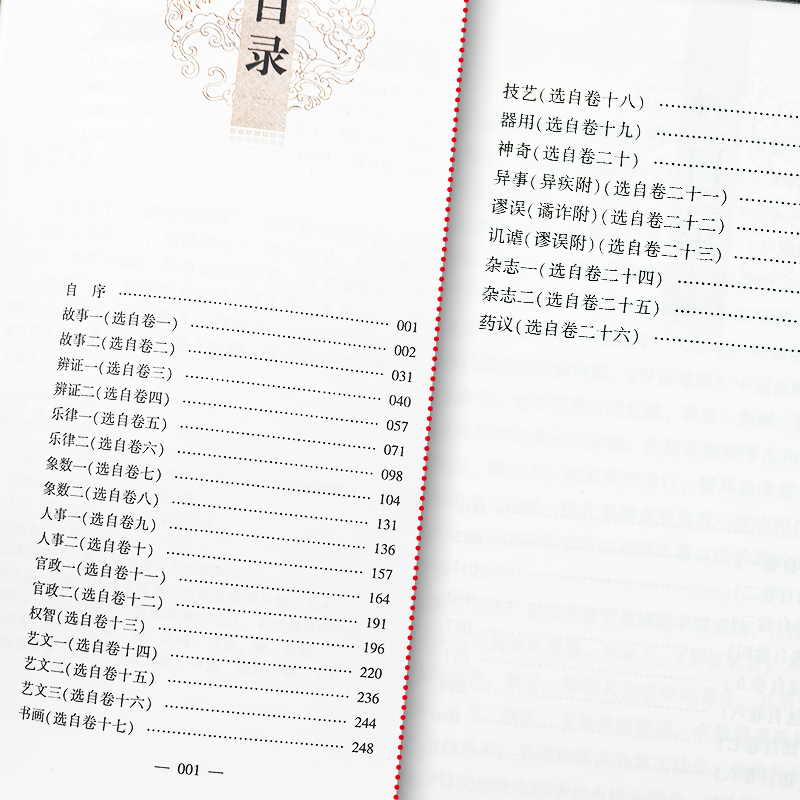 目录
自 序 …… 001
故事一(选自卷一) …… 002
故事二(选自卷二) …… 031
辨证一(选自卷三) …… 040
辨证二(选自卷四) …… 057
乐律一(选自卷五) …… 071
乐律二(选自卷六) …… 098
象数一(选自卷七) …… 104
象数二(选自卷八) …… 131
人事一(选自卷九) …… 136
人事二(选自卷十) …… 157
官政一(选自卷十一) …… 164
官政二(选自卷十二) …… 191
权智(选自卷十三) …… 196
艺文一(选自卷十四) …… 220
艺文二(选自卷十五) …… 236
艺文三(选自卷十六) …… 244
书画(选自卷十七) …… 248
— 001 —
技艺(选自卷十八) ……
器用(选自卷十九) ……
神奇(选自卷二十) ……
异事(异疾附)(选自卷二十一) ……
谬误(谲诈附)(选自卷二十二) ……
讥谑(谬误附)(选自卷二十三) ……
杂志一(选自卷二十四) ……
杂志二(选自卷二十五) ……
药议(选自卷二十六) ……